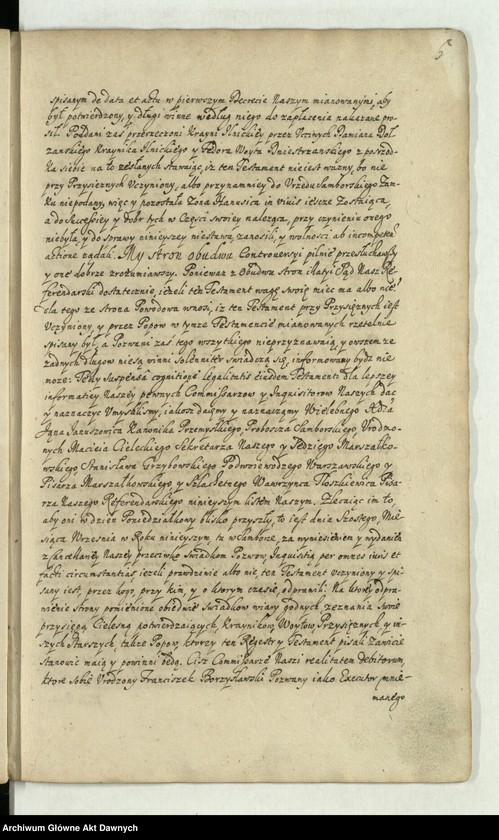 6
spisanym de data et actu w pierwszym Decrecie Naszym mianowanym, aby
był potwierdzony, y długi winne według niego do zapłacenia nakazane pro
sili. Poddani zas przerzeczoni Krayny Ilnickiey przez Uczciwych Damiana
Kraynika Ilnickiego y Fedora Woyta Dniestrzanskiego z posrzod
ka siebie na to zesłanych stawaiąc, iz ten Testament nieiest wazny, bo nie
przy Przysięznych Uczyniony, albo przynamniey do Urzedu Samborskiego Zam
ku niepodany, więc y pozostała Zona Hanusica in viuis ieszcze Zostaiąca,
a do Successiey y dobr tych w Częsci swoiey naleząca, przy czynieniu onego
niebyła, y do sprawy ninieyszey niestawa, zanosili, y wolnosci ab
actione ządali. My stron obudwu Controuersyi pilnie przesłuchawszy
y one dobrze zrozumiawszy. Poniewaz z Obudwu stron Sąd Nasz Re
ferendarski dostatecznie, iezeli ten Testament wagę swoię miec ma albo nie:
dla tego ze strona Powodowa wnosi, iz ten Testament przy Przysięznych iest
Uczyniony, y przez Popow w tymze Testamencie mianowanych rzetelnie
spisany był, a Pozwani zas tego wszytkiego nieprzyznawaią, y owszem ze
zadnych długow niesą winni solenniter swiadczą się, informowany bydz nie
moze: Tedy suspensa cognitione legalitatis eiusdem Testamenti dla lepszey
informatiey Naszey pewnych Commissarzow y Inquisitorow Naszych dac
y naznaczyc Umyslilismy, iakosz daiemy y naznaczamy Wielebnego
Jana Januszowica Kanonika Przemyskiego, Proboszcza Samborskiego Urodzo
nych Macieia Cieleckiego Sekretarza Naszego y Sędziego Marszałko
wskiego, Stanisława Grzybowskiego Podwoiewodzego Warszawskiego y
Pisarza Marszałkowskiego y Szlachetnego Wawrzynca Tłoszkiewica Pisa
rza Naszego Referendarskiego ninieyszym listem Naszym. Zlecaiąc im to,
aby oni w dzien Poniedziałkowy blisko przyszły, to iest dnia Szostego, Mie
siąca Wrzesnia w Roku ninieyszym, tu w Samborze, za wyniesieniem y wydaniem
z Cancellariey Naszey przeciwko Swiadkom Pozwow, Inquisitią per omnes iuris et
facti circumstantias, iezeli prawdziwie albo nie, ten Testament uczyniony y spi
sany iest, przez kogo, przy kim, y o ktorym czasie, odprawili: Na ktorey odpra
wienie strony pomienione obiedwie Swiadkow wiary godnych zeznania swoie
przysięgą Cielesną potwierdzaiących, Kraynikow, Woytow, Przysięznych, y in
szych starszych, takze Popow, ktorzy ten Regestr y Testament pisali
stanowic maią y powinni będą. Ciz Commissarze Naszi realitatem debitorum,
ktore sobie Urodzony Franciszek Borzysławski Pozwany iako Executor, mnie
manego
Archiwum Główne Akt Dawnych